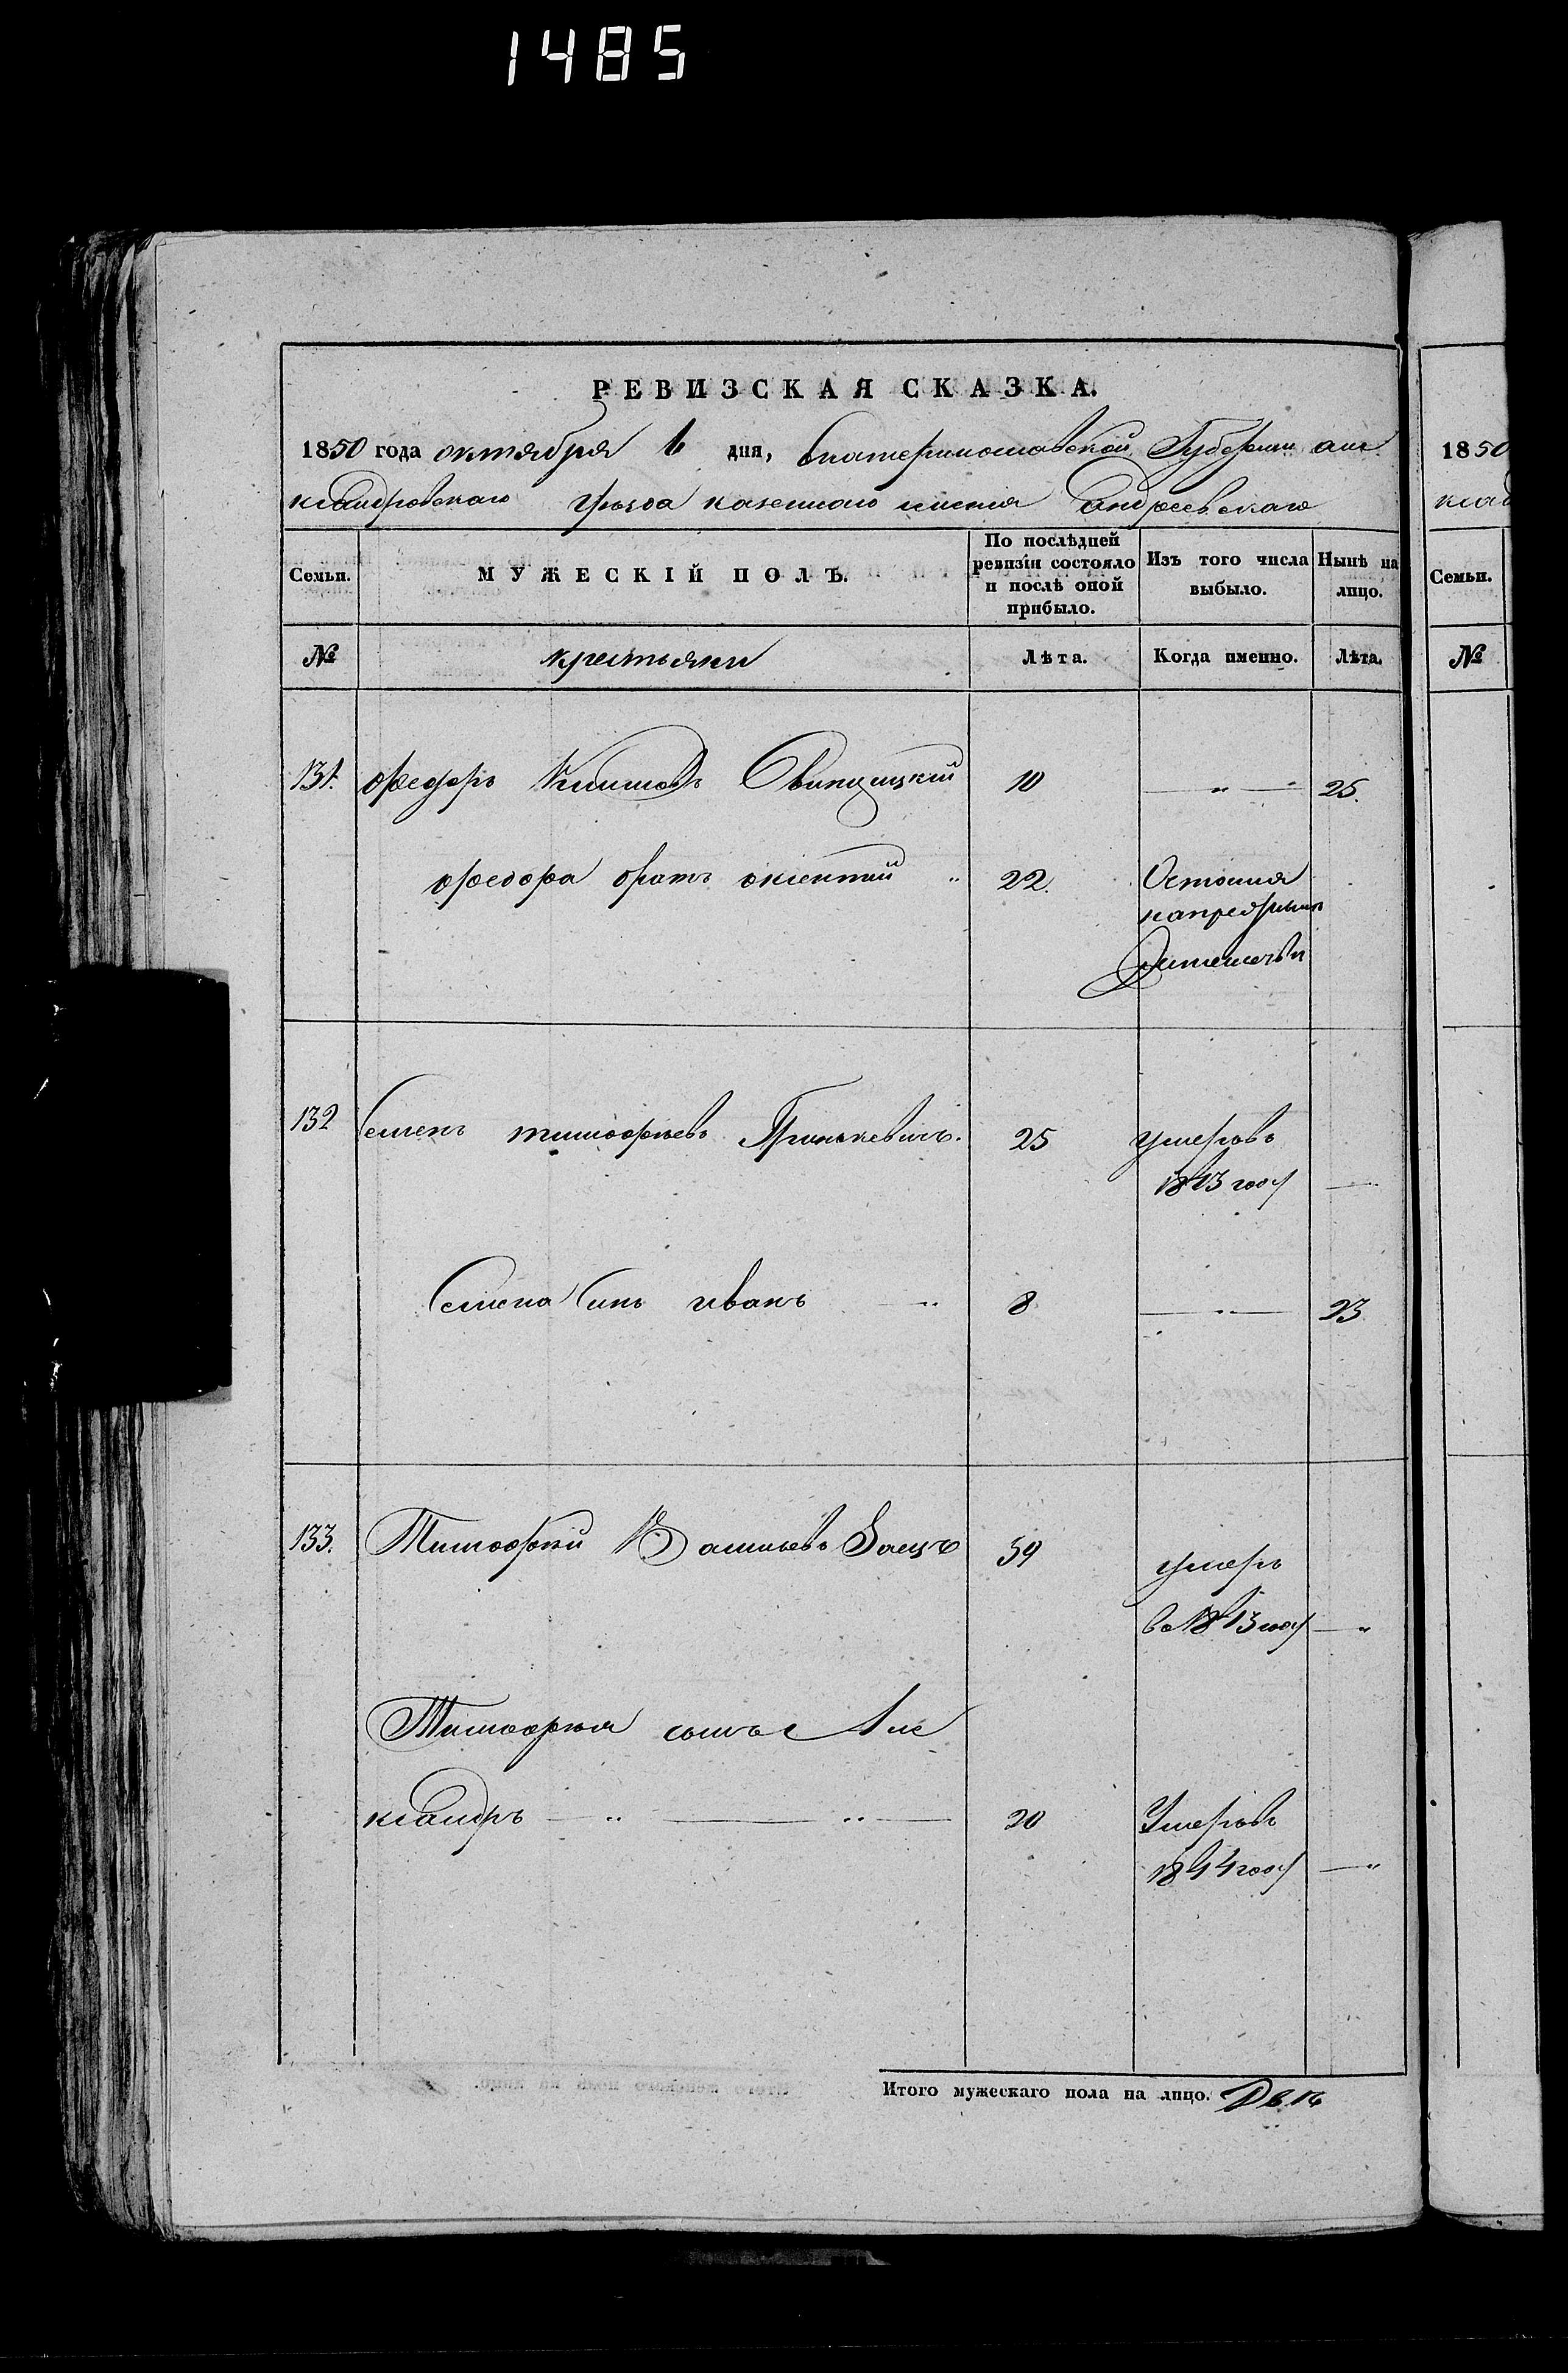 1485
РЕВИЗСКАЯ СКАЗКА.
1850 года октября 6 дня, Екатеринославской Губернии але
ксандровского уѣзда казенного имения Андреевского
Семьи.
МУЖЕСКІЙ ПОЛЪ.
По послѣдней ревизіи состояло и послѣ оной прибыло.
Изъ того числа выбыло.
Нынѣ на лицо.
№
крестьяни
Лѣта.
Когда именно.
Лѣта.
131. Федоръ Климовъ 10 25.
федора братъ 22.
132 Семенъ тимофѣевъ Гринкевичъ. 25 умеръ въ
1843 году
Семена Синъ иванъ 8 23
133. Тимофѣй Васильевъ Заецъ 59 умеръ
въ 1843 году
Тимофѣя сынъ Але
ксандръ 20 Умеръ въ
1844 году
Итого мужескаго пола на лицо. Двѣ
1850
Семьи.
№